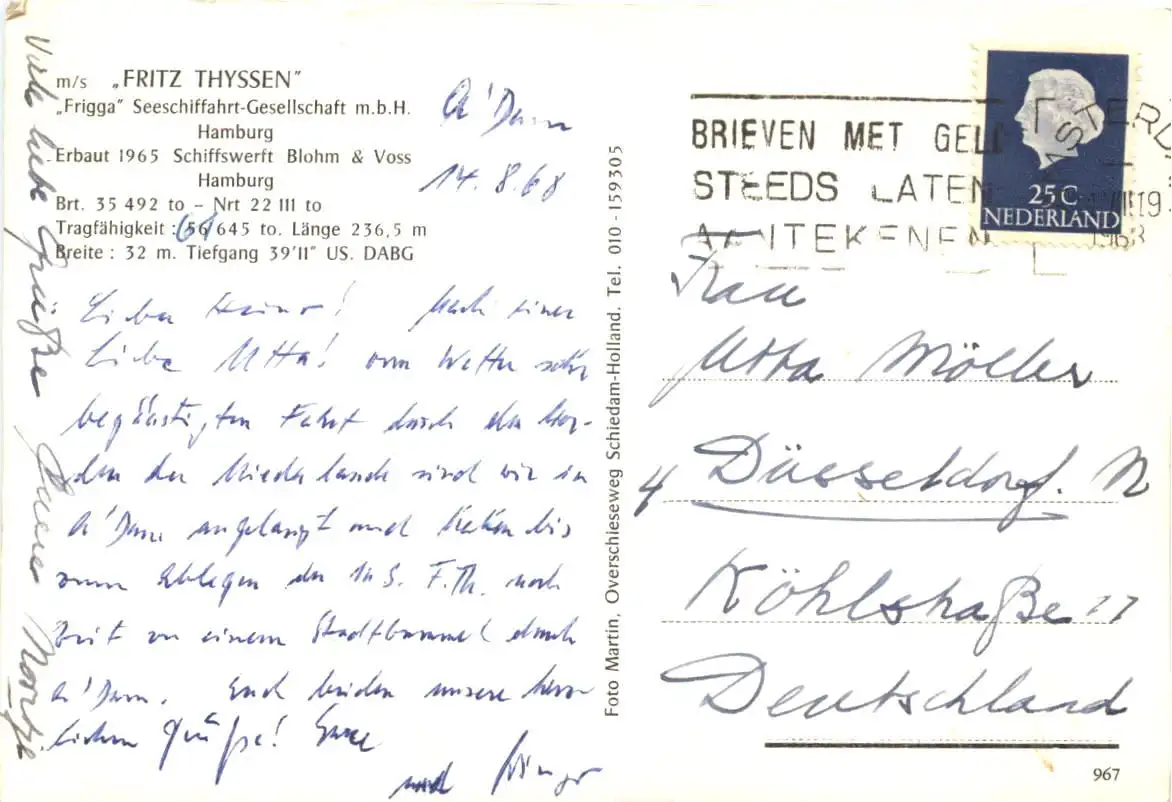 m/s „FRITZ THYSSEN"
„Frigga" Seeschiffahrt-Gesellschaft m.b.H.
Hamburg
Erbaut 1965 Schiffswerft Blohm & Voss
Hamburg
Brt. 35 492 to – Nrt 22 111 to
Tragfähigkeit : 61 645 to. Länge 236,5 m
Breite : 32 m. Tiefgang 39'11" US. DABG
A'Dam
14.8.68
Lieber ! Nach einer
Liebe Utta! vom Wetter sehr
begünstigten Fahrt durch den Nor-
den der Niederlande sind wir in
A'Dam angelangt und haben bis
zum Ablegen der M.S. F.Th. noch
Zeit zu einem Stadtbummel durch
A'Dam. Euch beiden unsere herz-
lichen Grüße! Eure
und
Viele liebe Grüße
Foto Martin, Overschieseweg Schiedam-Holland. Tel. 010-159305
BRIEVEN MET GELD
STEEDS LATEN
AANTEKENEN
AMSTERD
1968
25 C
NEDERLAND
Frau
Utta Möller
4 Düsseldorf. N
Köhlstraße 17
Deutschland
967